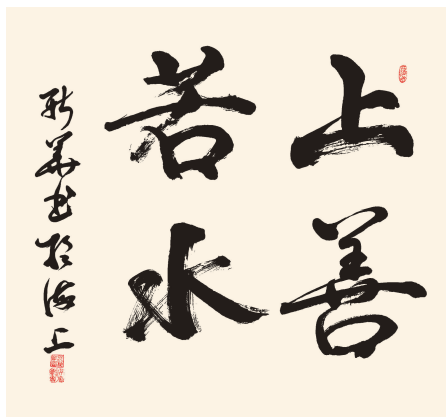 上善
若水
新華书於海上